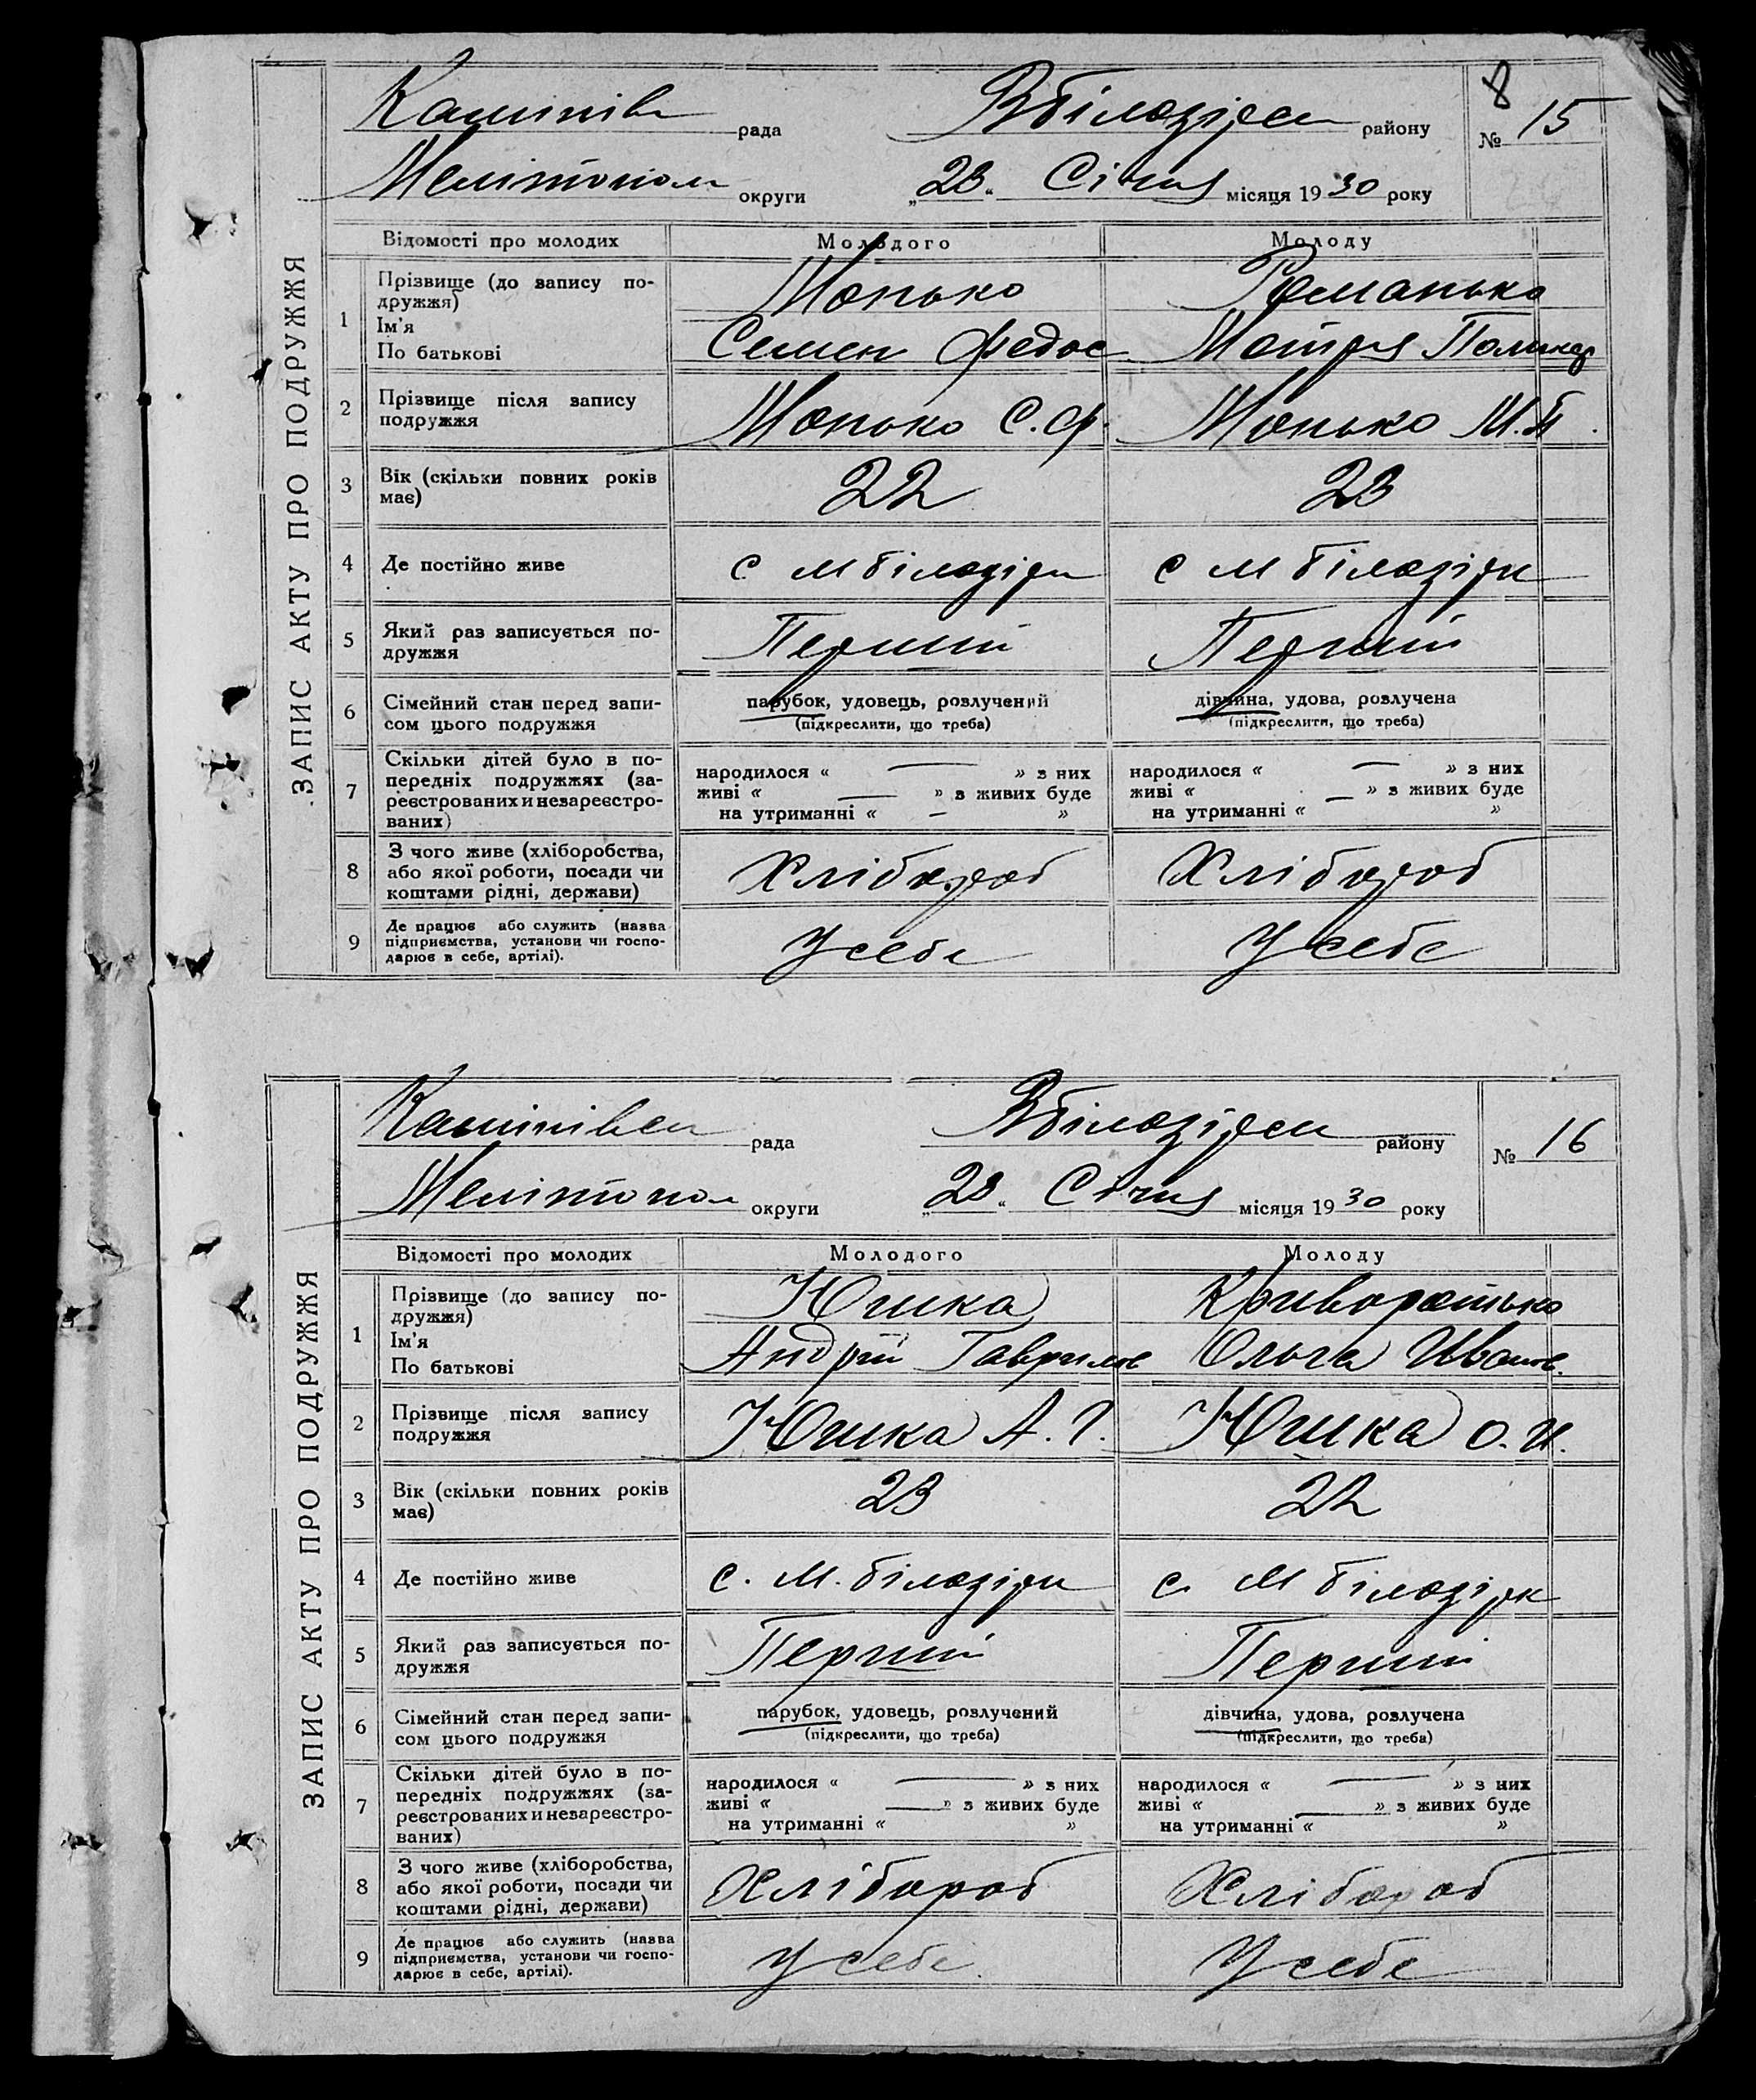 8
Кашинів рада Вбілозірсы району № 15
Мелітопол округи „23“ Січня місяця 1930 року
ЗАПИС АКТУ ПРО ПОДРУЖЖЯ
Відомості про молодих Молодого Молоду
1 Прізвище (до запису по-
дружжя) Монько Романько
Ім'я
По батькові Семен Федос Мотря Поликар
2 Прізвище після запису
подружжя Монько С.Ф. Монько М.П.
3 Вік (скільки повних років
має) 22 23
4 Де постійно живе с м білозірки с м білозірки
5 Який раз записується по-
дружжя Перший Перший
6 Сімейний стан перед запи-
сом цього подружжя парубок, удовець, розлучений дівчина, удова, розлучена
(підкреслити, що треба) (підкреслити, що треба)
7 Скільки дітей було в по-
передніх подружжях (за-
реєстрованих и незареєстро-
ваних)
народилося « — » з них народилося « — » з них
живі « — » з живих буде живі « — » з живих буде
на утриманні « — » на утриманні « »
8 З чого живе (хліборобства,
або якої роботи, посади чи
коштами рідні, держави) Хлібороб Хлібороб
9 Де працює або служить (назва
підприємства, установи чи госпо-
дарює в себе, артілі). У себе У себе
Кашинівсы рада Вбілозірсы району № 16
Мелітопол округи „23“ Січня місяця 1930 року
ЗАПИС АКТУ ПРО ПОДРУЖЖЯ
Відомості про молодих Молодого Молоду
1 Прізвище (до запису по-
дружжя) Юшка Криворотько
Ім'я
По батькові Андрій Гаврилов Ольга Иванов.
2 Прізвище після запису
подружжя Юшка А.Г. Юшка О.И.
3 Вік (скільки повних років
має) 23 22
4 Де постійно живе с. м. білозірки с. м білозірк
5 Який раз записується по-
дружжя Перший Перший
6 Сімейний стан перед запи-
сом цього подружжя парубок, удовець, розлучений дівчина, удова, розлучена
(підкреслити, що треба) (підкреслити, що треба)
7 Скільки дітей було в по-
передніх подружжях (за-
реєстрованих и незареєстро-
ваних)
народилося « — » з них народилося « — » з них
живі « — » з живих буде живі « — » з живих буде
на утриманні « » на утриманні « »
8 З чого живе (хліборобства,
або якої роботи, посади чи
коштами рідні, держави) Хлібороб Хлібороб
9 Де працює або служить (назва
підприємства, установи чи госпо-
дарює в себе, артілі). У себе У себе